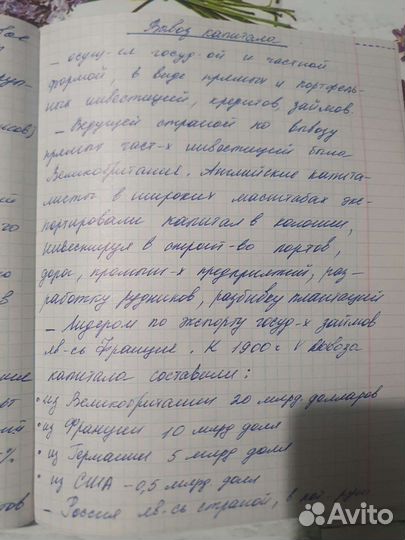 Вывоз капитала
- осущ-ся госуд-ой и частной
формой, в виде прямых и портфель-
ных инвестиций, кредитов, займов.
- Ведущей страной по вывозу
прямых част-х инвестиций была
Великобритания. Английские капита-
листы в широких масштабах экс-
портировали капитал в колонии,
инвестируя в строит-во портов,
дорог, промыш-х предприятий, раз-
работку рудников, разбивку плантаций
- Лидером по экспорту госуд-х займов
яв-сь Франция. К 1900 г V вывоза
капитала составили:
• из Великобритании 20 млрд долларов
• из Франции 10 млрд долл
• из Германии 5 млрд долл
• из США - 0,5 млрд. долл
- Россия яв-сь страной, в
Avito